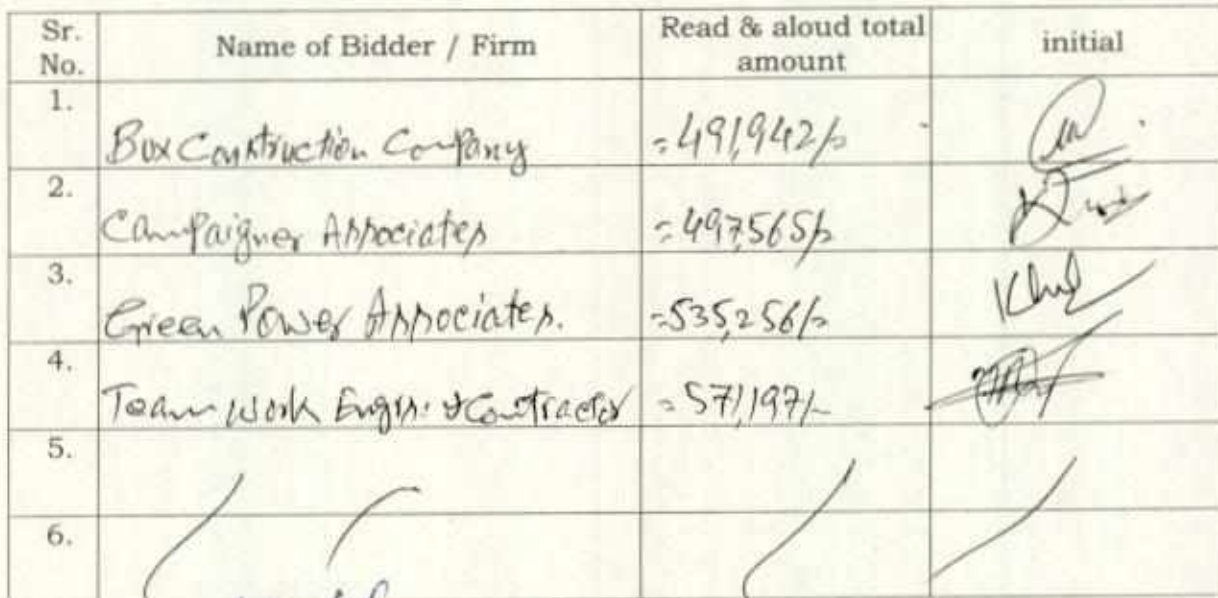 Sr. No. Name of Bidder / Firm Read & aloud total amount initial
1. Box Construction Company =491,942/-
2. Campaigner Associates =497,565/-
3. Green Power Associates. =535,256/-
4. Team Work Engrs: & Contractor =571,197/-
5.
6.